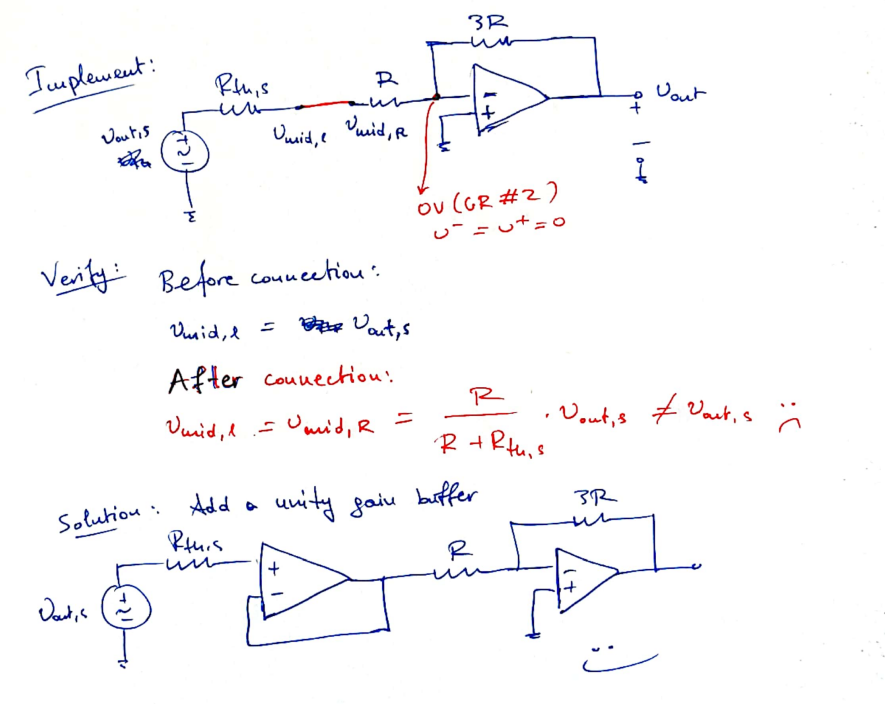 3R
Implement:
R_th,s
R
v_out,s
v_mid,l
v_mid,R
-
+
v_out
+
-
0V (GR #2)
v⁻ = v⁺ = 0
Verify: Before connection:
v_mid,l = v_out,s
After connection:
v_mid,l = v_mid,R = R / (R + R_th,s) · v_out,s ≠ v_out,s
Solution: Add a unity gain buffer
3R
R_th,s
R
+
-
-
+
v_out,s
+
-